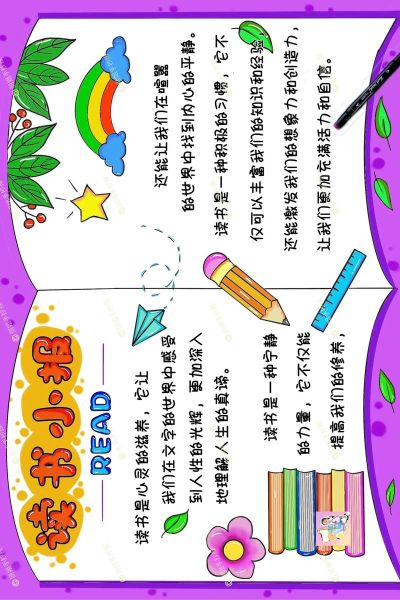 读书小报
READ
读书是心灵的滋养，它让
我们在文字的世界中感受
到人性的光辉，更加深入
地理解人生的真谛。
读书是一种宁静
的力量，它不仅能
提高我们的修养，
还能让我们在喧嚣
的世界中找到内心的平静。
读书是一种积极的习惯，它不
仅可以丰富我们的知识和经验，
还能激发我们的想象力和创造力，
让我们更加充满活力和自信。